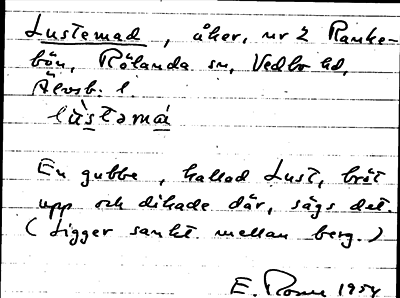 Lustemad, åker, nr 2 Ranke-
bön, Rölanda sn, Vedbo hd,
Älvsb. l.
lùstəmá
En gubbe, kallad Lust, bröt
upp och dikade där, sägs det.
(Ligger sankt mellan berg.)
E. 1954